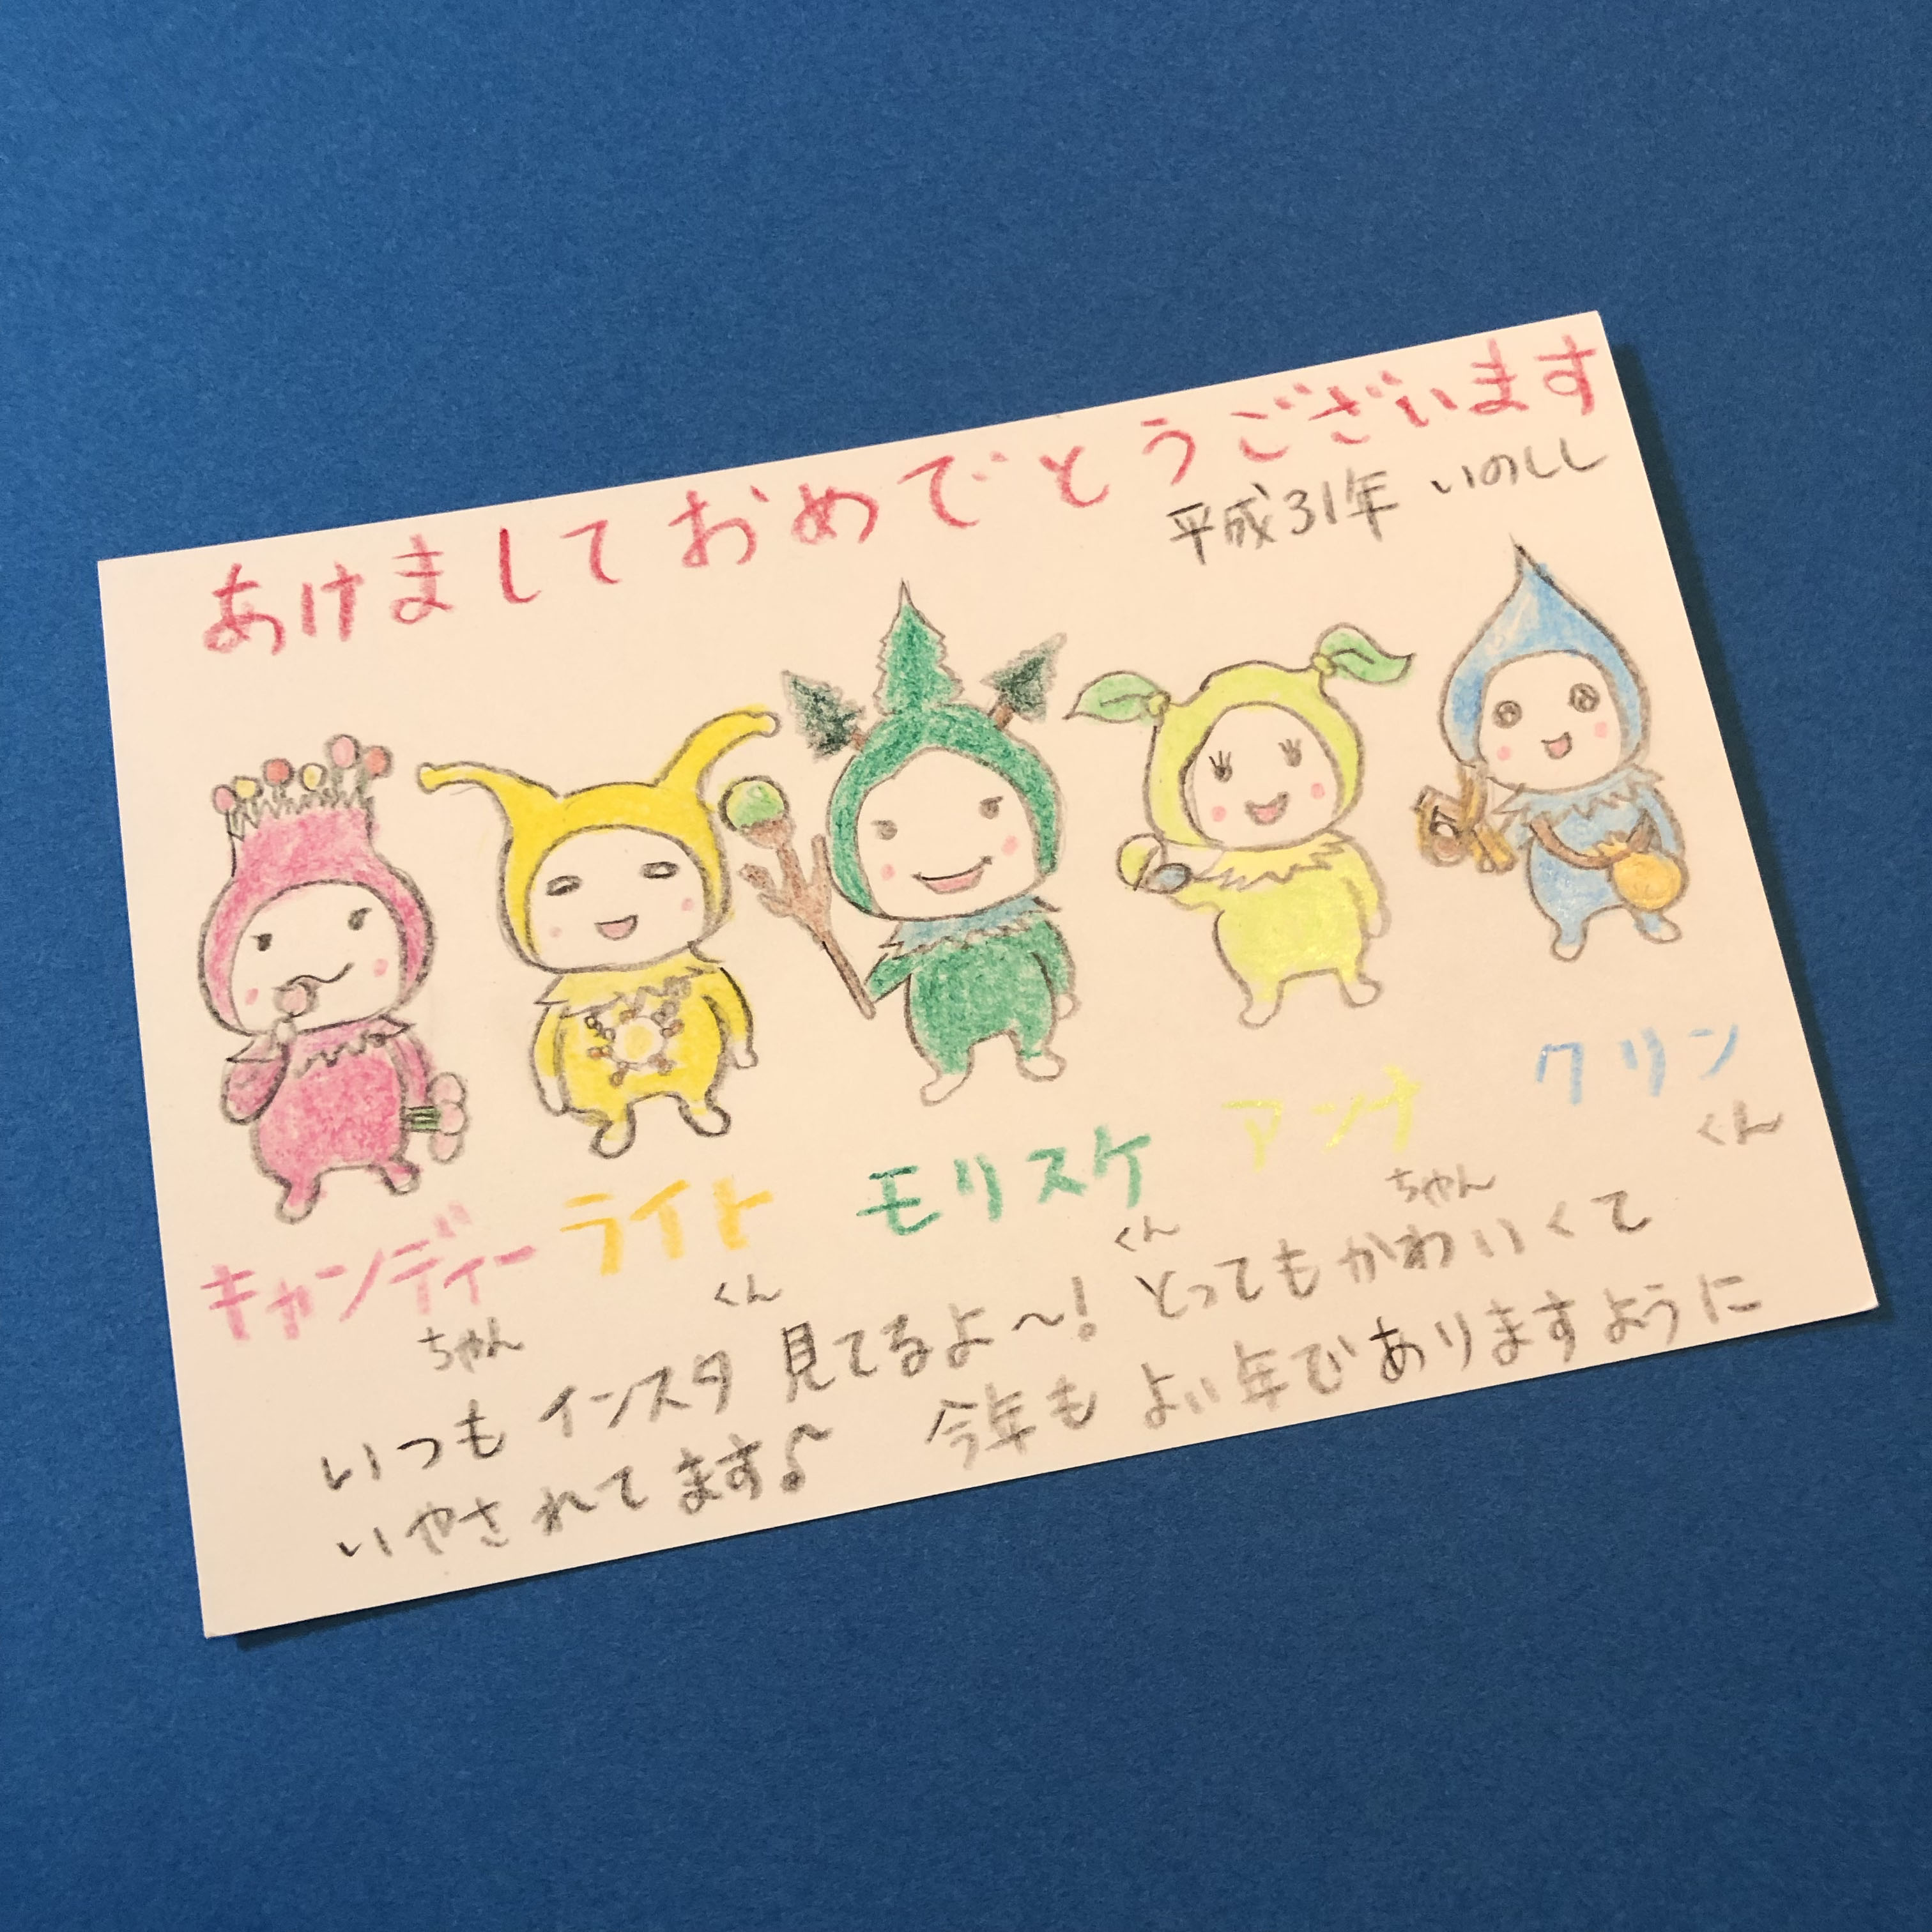 あけましておめでとうございます
平成31年 いのしし
キャンディーちゃん
ライトくん
モリスケくん
アンナちゃん
クリンくん
いつもインスタ見てるよ〜!とってもかわいくて
いやされてます♪ 今年もよい年でありますように